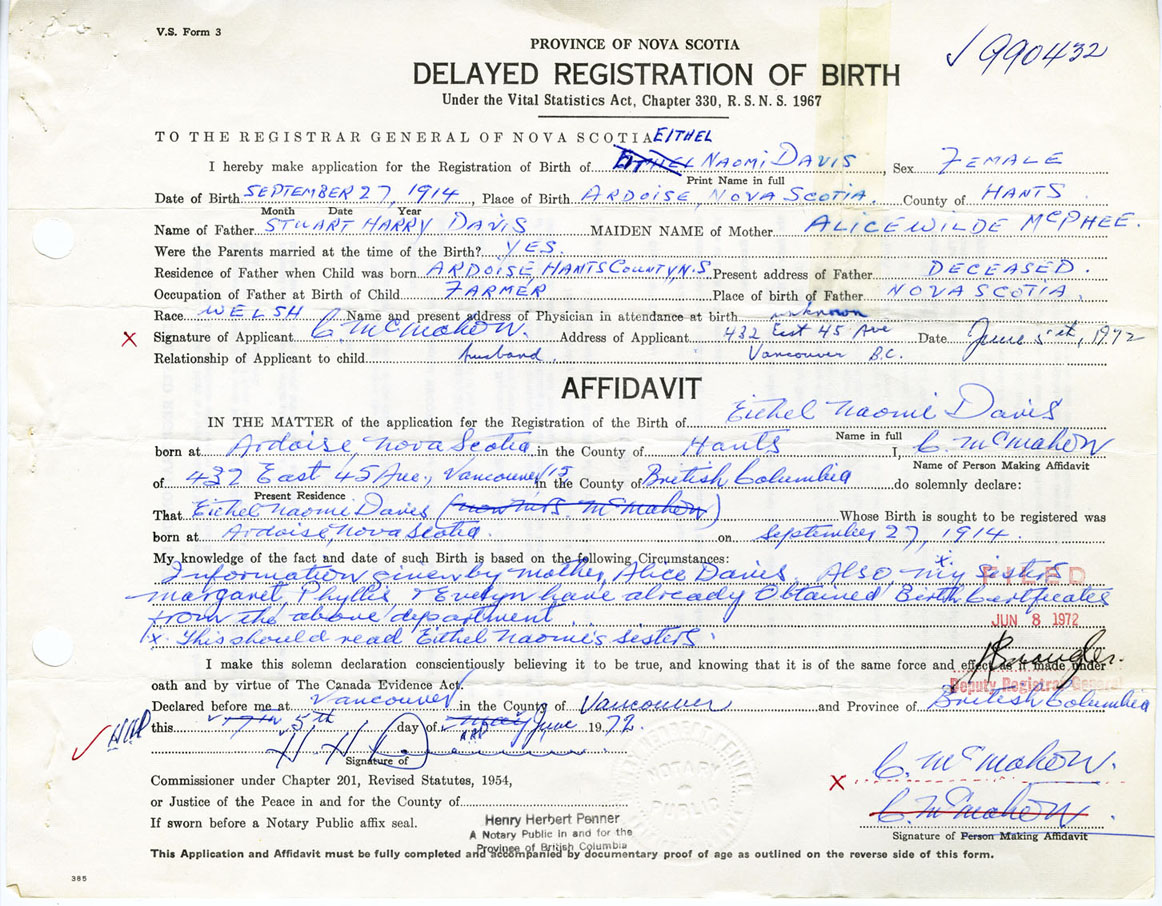 V.S. Form 3
990432
PROVINCE OF NOVA SCOTIA
DELAYED REGISTRATION OF BIRTH
Under the Vital Statistics Act, Chapter 330, R. S. N. S. 1967
TO THE REGISTRAR GENERAL OF NOVA SCOTIA EITHEL
I hereby make application for the Registration of Birth of ETHEL NAOMI DAVIS, Sex FEMALE
Print Name in full
Date of Birth SEPTEMBER 27, 1914, Place of Birth ARDOISE, NOVA SCOTIA. County of HANTS
Month Date Year
Name of Father STUART HARRY DAVIS MAIDEN NAME of Mother ALICE WILDE McPHEE.
Were the Parents married at the time of the Birth? YES.
Residence of Father when Child was born ARDOISE, HANTS COUNTY, N.S. Present address of Father DECEASED.
Occupation of Father at Birth of Child FARMER Place of birth of Father NOVA SCOTIA.
Race WELSH Name and present address of Physician in attendance at birth unknown
X Signature of Applicant C. McMahon. Address of Applicant 432 East 45 Ave Date June 5th, 1972
Relationship of Applicant to child husband Vancouver B.C.
AFFIDAVIT
IN THE MATTER of the application for the Registration of the Birth of Eithel Naomi Davis
Name in full
born at Ardoise, Nova Scotia in the County of Hants I, C. McMahon
Name of Person Making Affidavit
of 432 East 45 Ave., Vancouver 15 in the County of British Columbia do solemnly declare:
Present Residence
That Eithel Naomi Davis (now Mrs. McMahon) Whose Birth is sought to be registered was
born at Ardoise, Nova Scotia. on September 27, 1914.
My knowledge of the fact and date of such Birth is based on the following Circumstances:
Information given by mother, Alice Davis. Also, my x. sisters
FILED
Margaret, Phyllis & Evelyn have already obtained Birth Certficates
from the above department.
JUN 8 1972
x. This should read Eithel Naomi's sisters.
I make this solemn declaration conscientiously believing it to be true, and knowing that it is of the same force and effect as if made under
oath and by virtue of The Canada Evidence Act.
Deputy Registrar General
Declared before me at Vancouver in the County of Vancouver and Province of British Columbia
HHP this 17th 5th day of May June 1972.
HHP
Signature of
Commissioner under Chapter 201, Revised Statutes, 1954,
X C. McMahon.
or Justice of the Peace in and for the County of
C. McMahon
If sworn before a Notary Public affix seal.
Signature of Person Making Affidavit
NOTARY PUBLIC
Henry Herbert Penner
A Notary Public in and for the
Province of British Columbia
This Application and Affidavit must be fully completed and accompanied by documentary proof of age as outlined on the reverse side of this form.
385